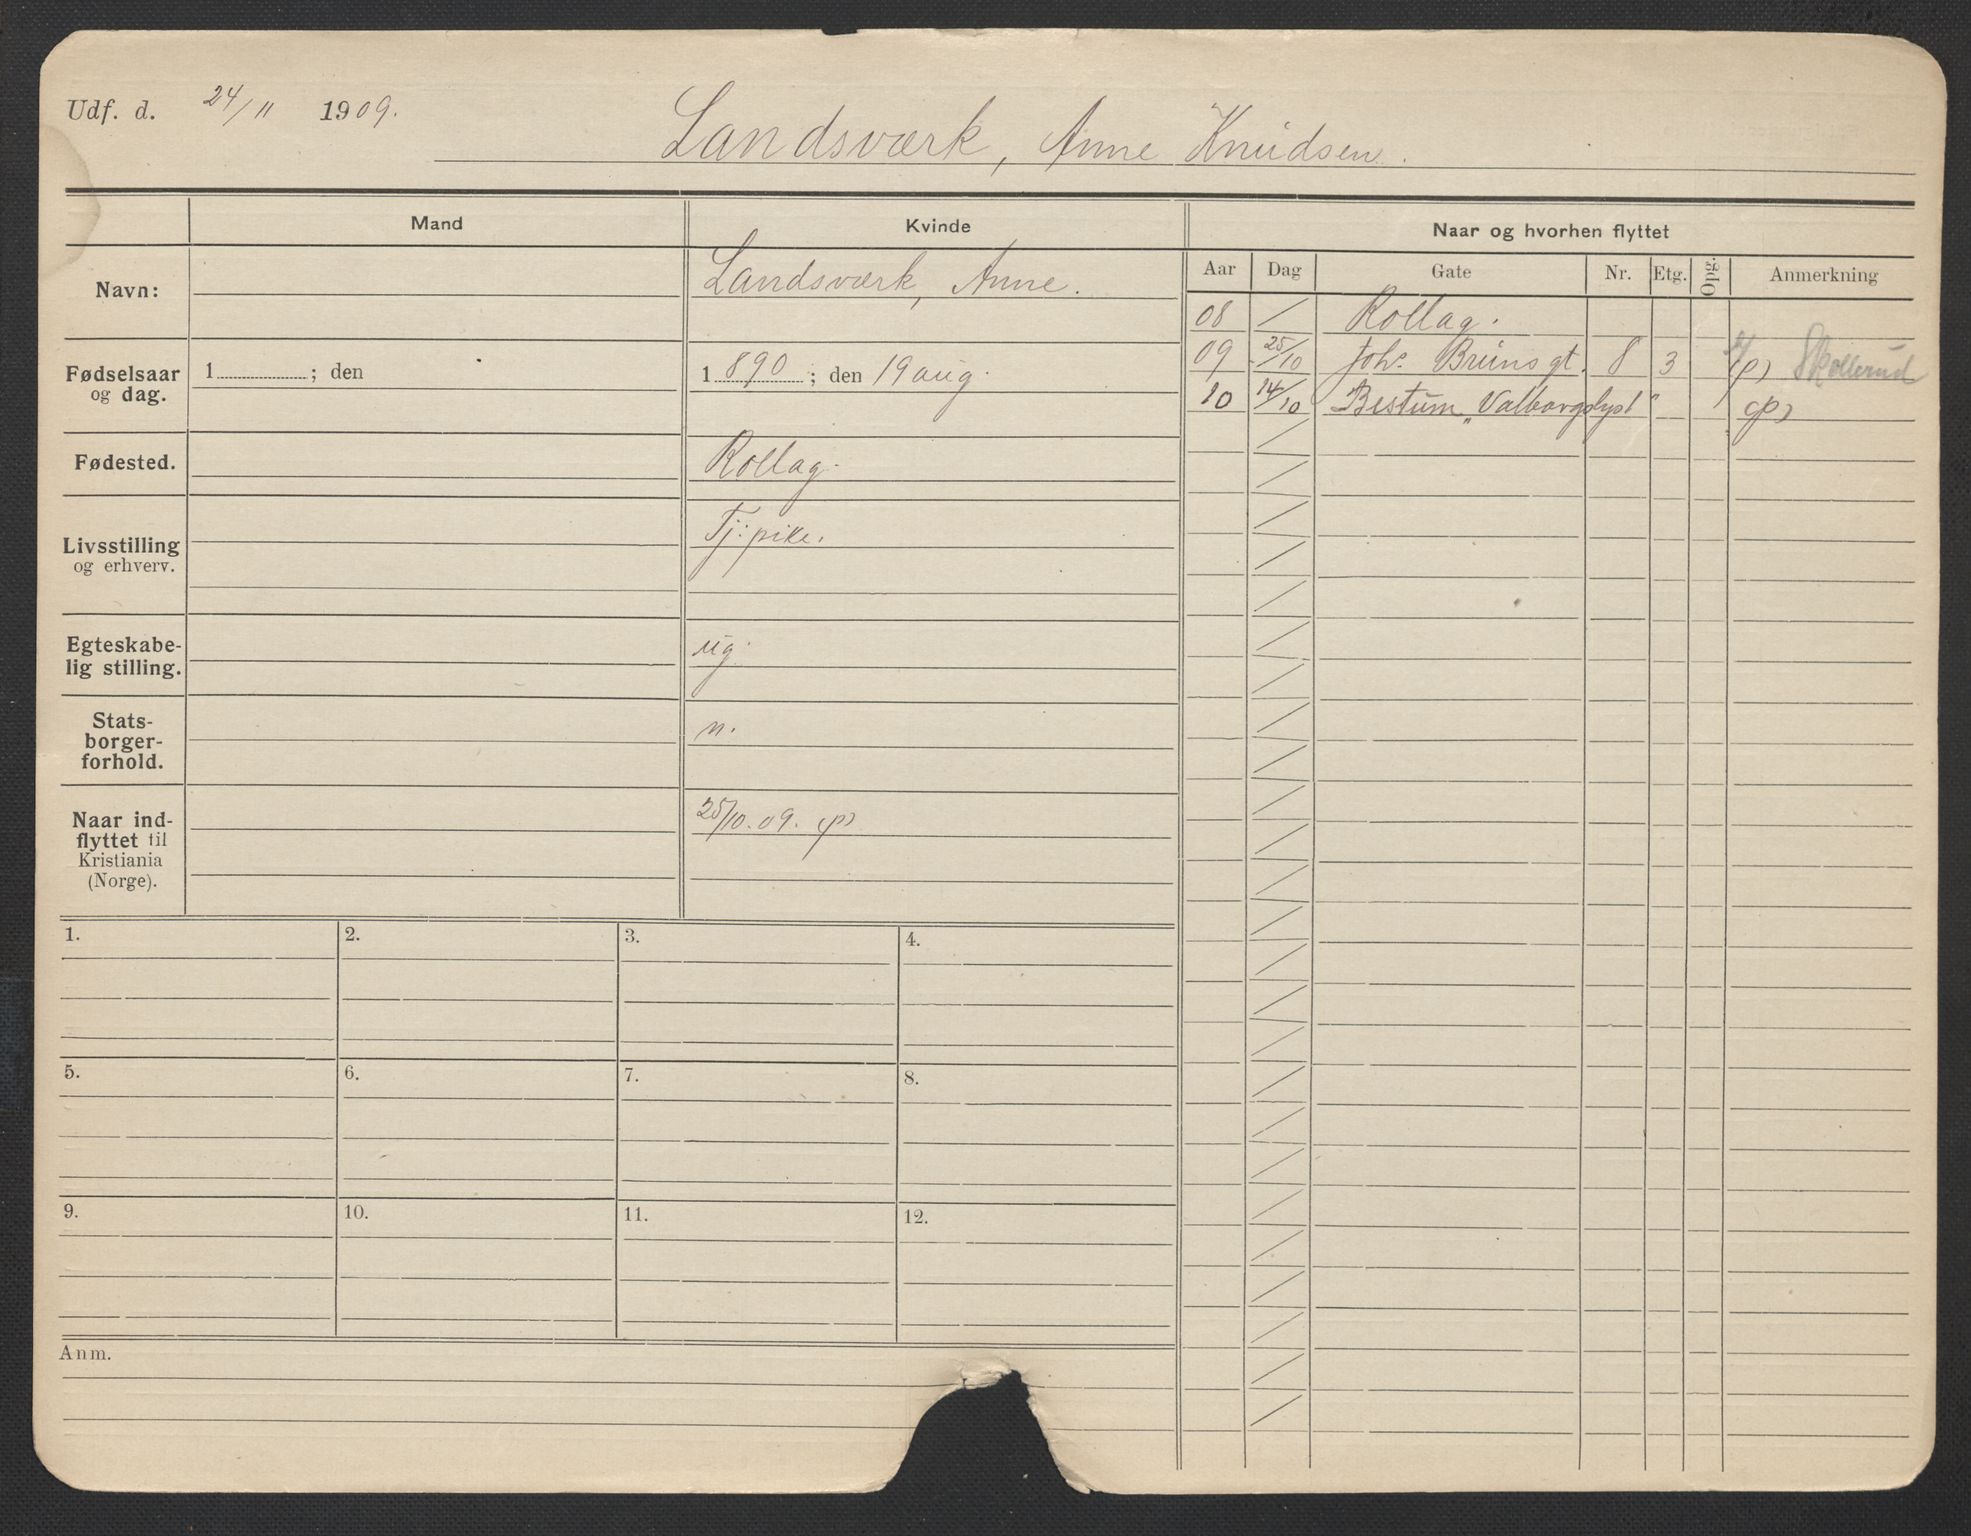 Udf. d. 24/11 1909.
Landsværk, Anne Knudsen.
Mand
Kvinde
Naar og hvorhen flyttet
Navn:
Landsværk, Anne.
Aar Dag Gate Nr. Etg. Opg. Anmerkning
08 / Rollag.
09 25/10 Johs. Bruns gt. 8 3 (p) Skollerud
10 14/10 Bestum "Valborgslyst" (p)
Fødselsaar
og dag.
1 ; den
1890 ; den 19 aug.
Fødested.
Rollag.
Livsstilling
og erhverv.
Tj: pike.
Egteskabe-
lig stilling.
ug.
Stats-
borger-
forhold.
n.
Naar ind-
flyttet til
Kristiania
(Norge).
25/10.09. (p)
1. 2. 3. 4.
5. 6. 7. 8.
9. 10. 11. 12.
Anm.